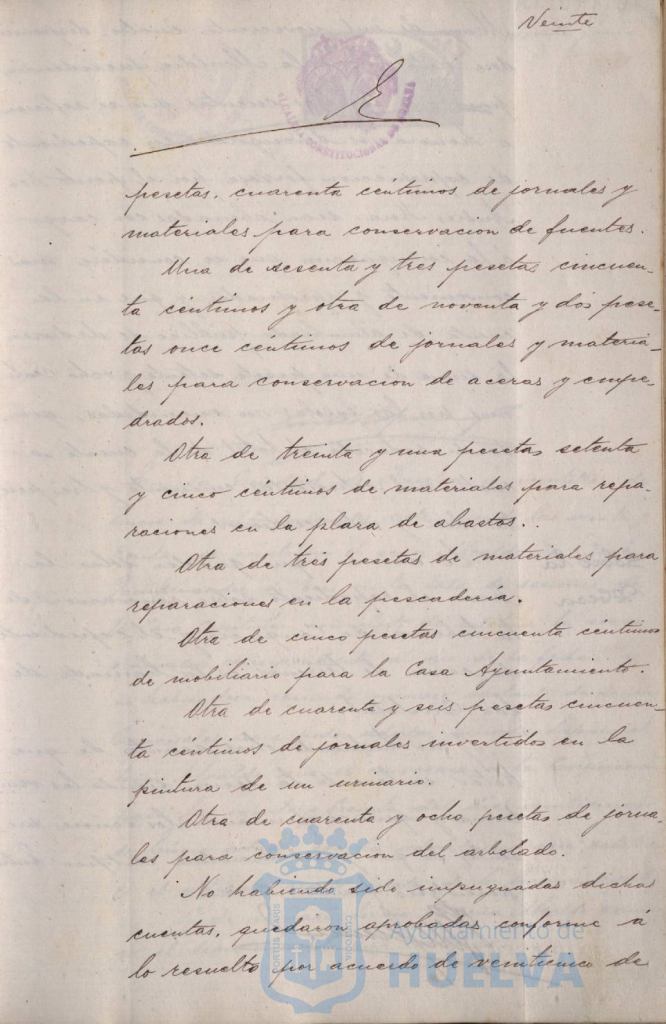 Veinte
ALCALDIA CONSTITUCIONAL DE HUELVA
pesetas, cuarenta céntimos de jornales y
materiales para conservacion de fuentes.
Una de sesenta y tres pesetas cincuen-
ta céntimos y otra de noventa y dos pese-
tas once céntimos de jornales y materia-
les para conservacion de aceras y empe-
drados.
Otra de treinta y una pesetas setenta
y cinco céntimos de materiales para repa-
raciones en la plaza de abastos.
Otra de tres pesetas de materiales para
reparaciones en la pescadería.
Otra de cinco pesetas cincuenta céntimos
de mobiliario para la Casa Ayuntamiento.
Otra de cuarenta y seis pesetas cincuen-
ta céntimos de jornales invertidos en la
pintura de un urinario.
Otra de cuarenta y ocho pesetas de jorna-
les para conservacion del arbolado.
No habiendo sido impugnadas dichas
cuentas, quedaron aprobadas conforme á
lo resuelto por acuerdo de veinticinco de
PORTUS MARIS
CUSTODIA
Ayuntamiento de
HUELVA